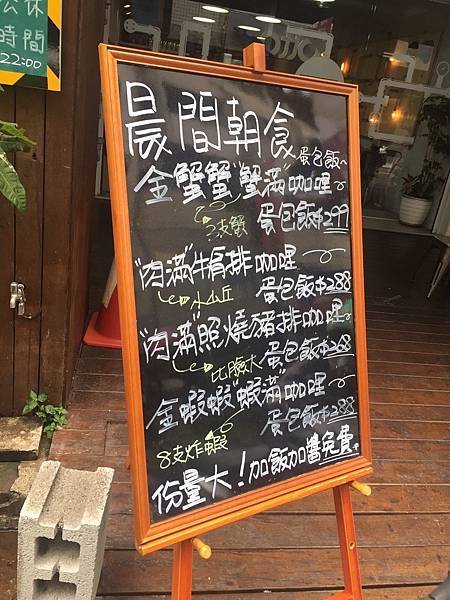 公休
時間
22:00
晨間朝食
蛋包飯~
全蟹蟹"蟹滿"咖哩
2支蟹
蛋包飯$299
"肉滿"牛肩排咖哩
小山丘
蛋包飯$288
"肉滿"照燒豬排咖哩
比臉大
蛋包飯$268
全蝦蝦"蝦滿"咖哩
8支炸蝦
蛋包飯$288
份量大!加飯加醬免費